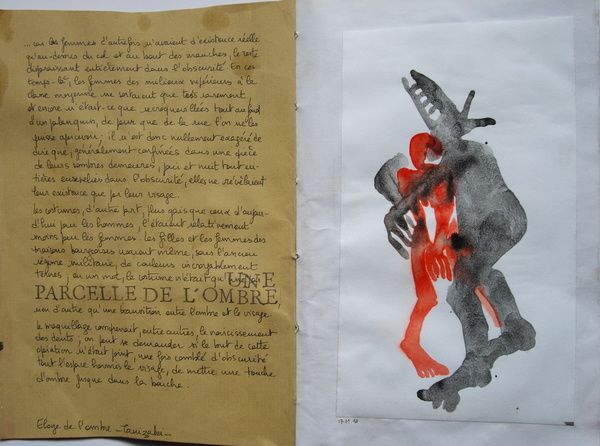 ... car les femmes d'autrefois n'avaient d'existence réelle
qu'au-dessus du col et au bout des manches, le reste
disparaissant entièrement dans l'obscurité. En ces
temps-là, les femmes des milieux supérieurs à la
classe moyenne ne sortaient que très rarement,
et encore n'était-ce que recroquevillées tout au fond
d'un palanquin, de peur que de la rue l'on ne les
puisse apercevoir; il n'est donc nullement exagéré de
dire que, généralement confinées dans une pièce
de leurs sombres demeures, jour et nuit tout en-
tières ensevelies dans l'obscurité, elles ne révélaient
leur existence que par leur visage.
Les costumes, d'autre part, plus gais que ceux d'aujour-
d'hui pour les hommes, l'étaient relativement
moins pour les femmes. Les filles et les femmes des
maisons bourgeoises usaient même, sous l'ancien
régime militaire, de couleurs incroyablement
ternes; en un mot, le costume n'était qu'
UNE
PARCELLE DE L'OMBRE,
rien d'autre qu'une transition entre l'ombre et le visage.
le maquillage comprenait, entre autres, le noircissement
des dents; on peut se demander si le but de cette
opération n'était point, une fois comblé d'obscurité
tout l'espace hormis le visage, de mettre une touche
d'ombre jusque dans la bouche.
Eloge de l'ombre - Tanizaki -